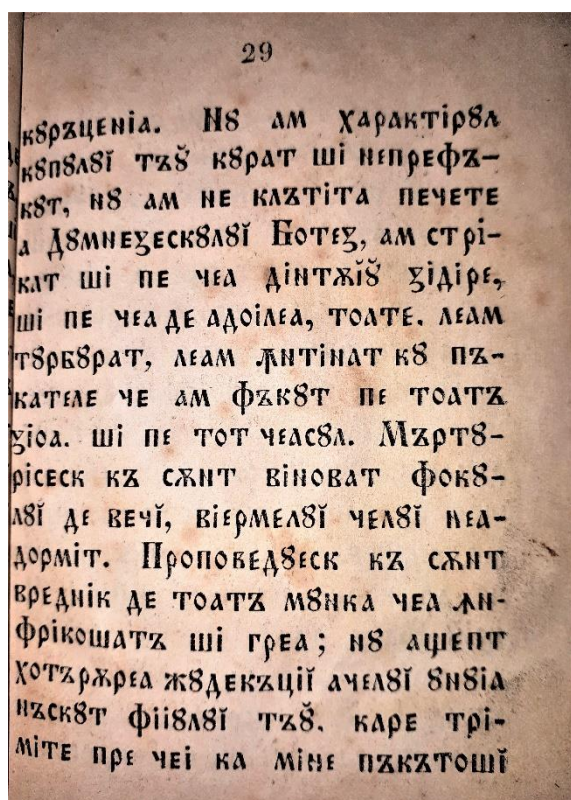 29
кꙋръценіа. Нꙋ ам характірꙋл
кꙋпꙋлꙋĭ тъꙋ̆ кꙋрат ші непрефъ-
кꙋт, нꙋ ам не клътіта печете
а Дꙋмнеꙁескꙋлꙋĭ Ботеꙁ, ам стрі-
кат ші пе чеа дінтѫĭꙋ̆ ꙁідіре,
ші пе чеа де адоілеа, тоате. леам
тꙋрбꙋрат, леам ꙟнтінат кꙋ пъ-
кателе че ам фъкꙋт пе тоатъ
ꙁіоа. ші пе тот чеасꙋл. Мъртꙋ-
рісеск къ сѫнт віноват фокꙋ-
лꙋĭ де вечĭ, віермелꙋĭ челꙋĭ неа-
дорміт. Проповедꙋеск къ сѫнт
вреднік де тоатъ мꙋнка чеа ꙟн-
фрікошатъ ші греа; нꙋ ащепт
хотърѫреа жꙋдекъціĭ ачелꙋĭ ꙋнꙋіа
нъскꙋт фіĭꙋлꙋĭ тъꙋ̆. каре трі-
міте пре чеі ка міне пъкътошĭ